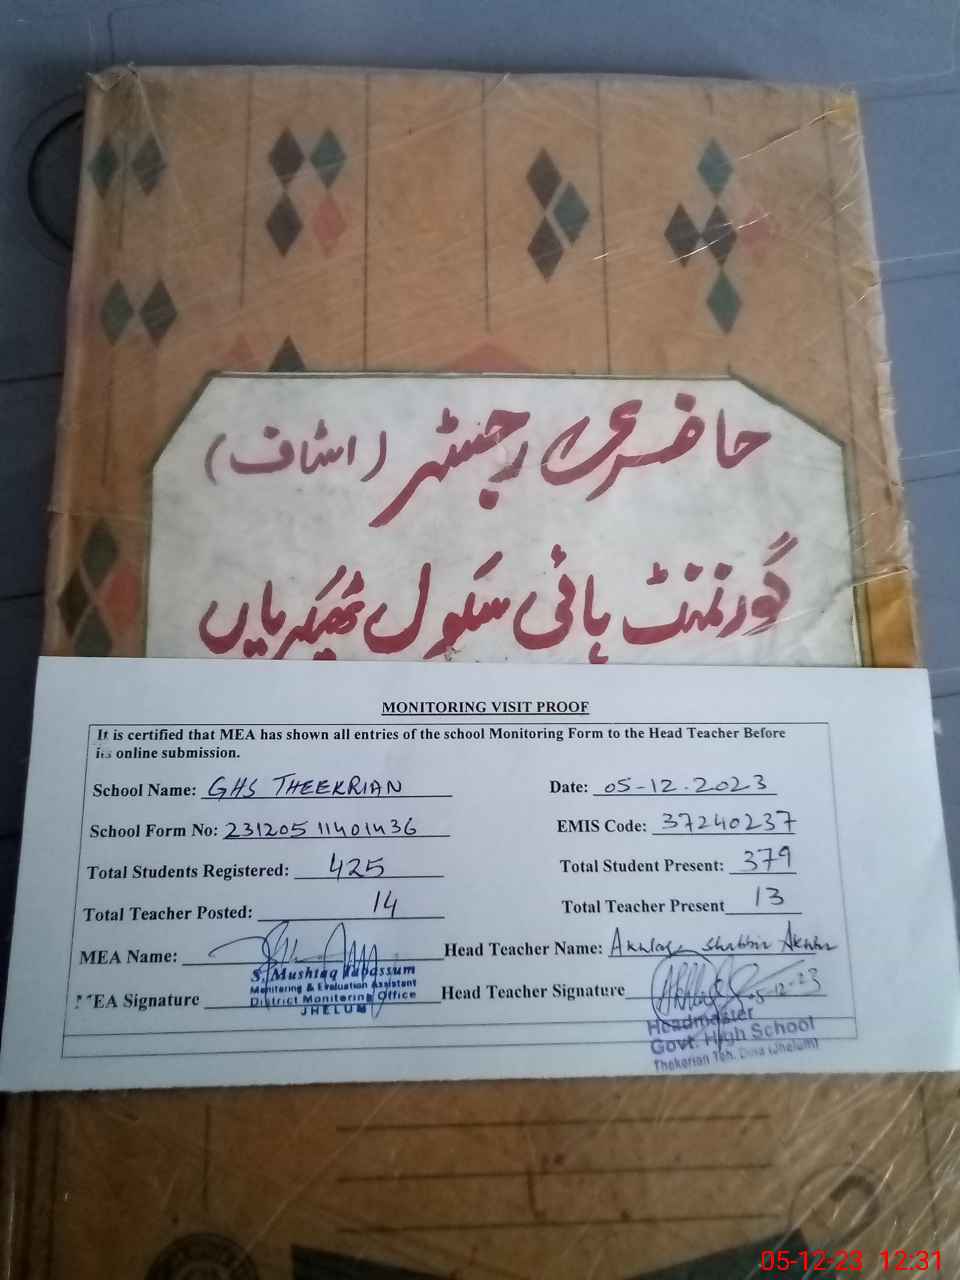 حاضری رجسٹر (اسٹاف)
گورنمنٹ ہائی سکول ٹھیکریاں
MONITORING VISIT PROOF
It is certified that MEA has shown all entries of the school Monitoring Form to the Head Teacher Before
its online submission.
School Name: GHS THEEKRIAN Date: 05-12.2023
School Form No: 231205 11401436 EMIS Code: 37240237
Total Students Registered: 425 Total Student Present: 379
Total Teacher Posted: 14 Total Teacher Present 13
MEA Name: Head Teacher Name: Akhlaq Shabbir Akhtar
S. Mushtaq Tabassum
Monitoring & Evaluation Assistant
MEA Signature Head Teacher Signature 05-12-23
District Monitoring Office
JHELUM
Headmaster
Govt. High School
Thekerian Teh. Dina (Jhelum)
05-12-23 12:31